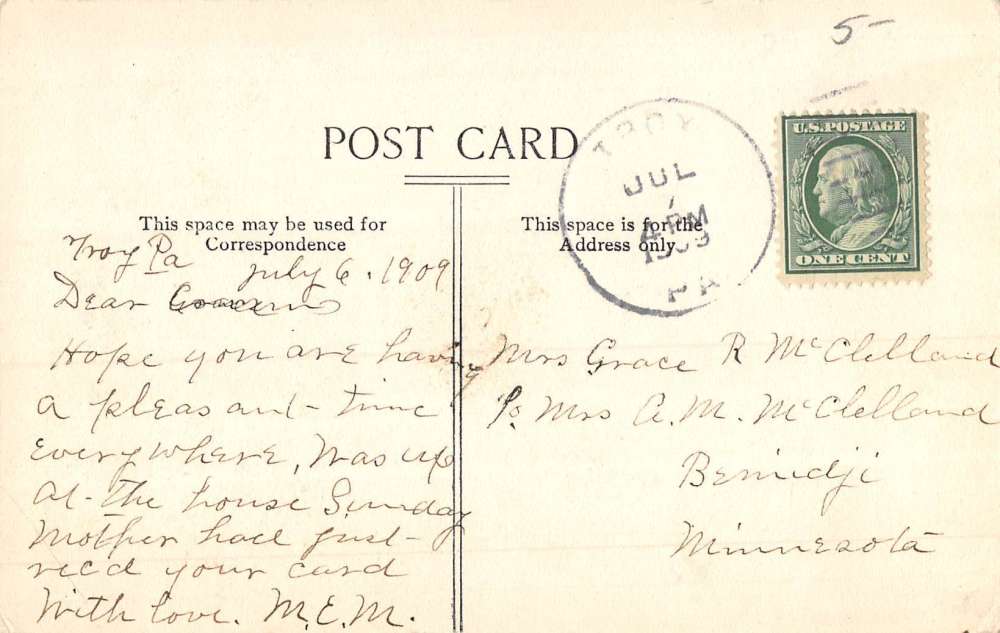 5-
POST CARD
TROY
JUL
4 PM
1909
PA
U.S. POSTAGE
ONE CENT
This space may be used for
Correspondence
This space is for the
Address only.
Troy Pa
July 6. 1909
Dear
Hope you are having
a pleasant time
everywhere, Was up
at the house Sunday
Mother had just
rec'd your card
With love. M.E.M.
Mrs Grace R McClelland
Mrs A. M. McClelland
Bemidji
Minnesota